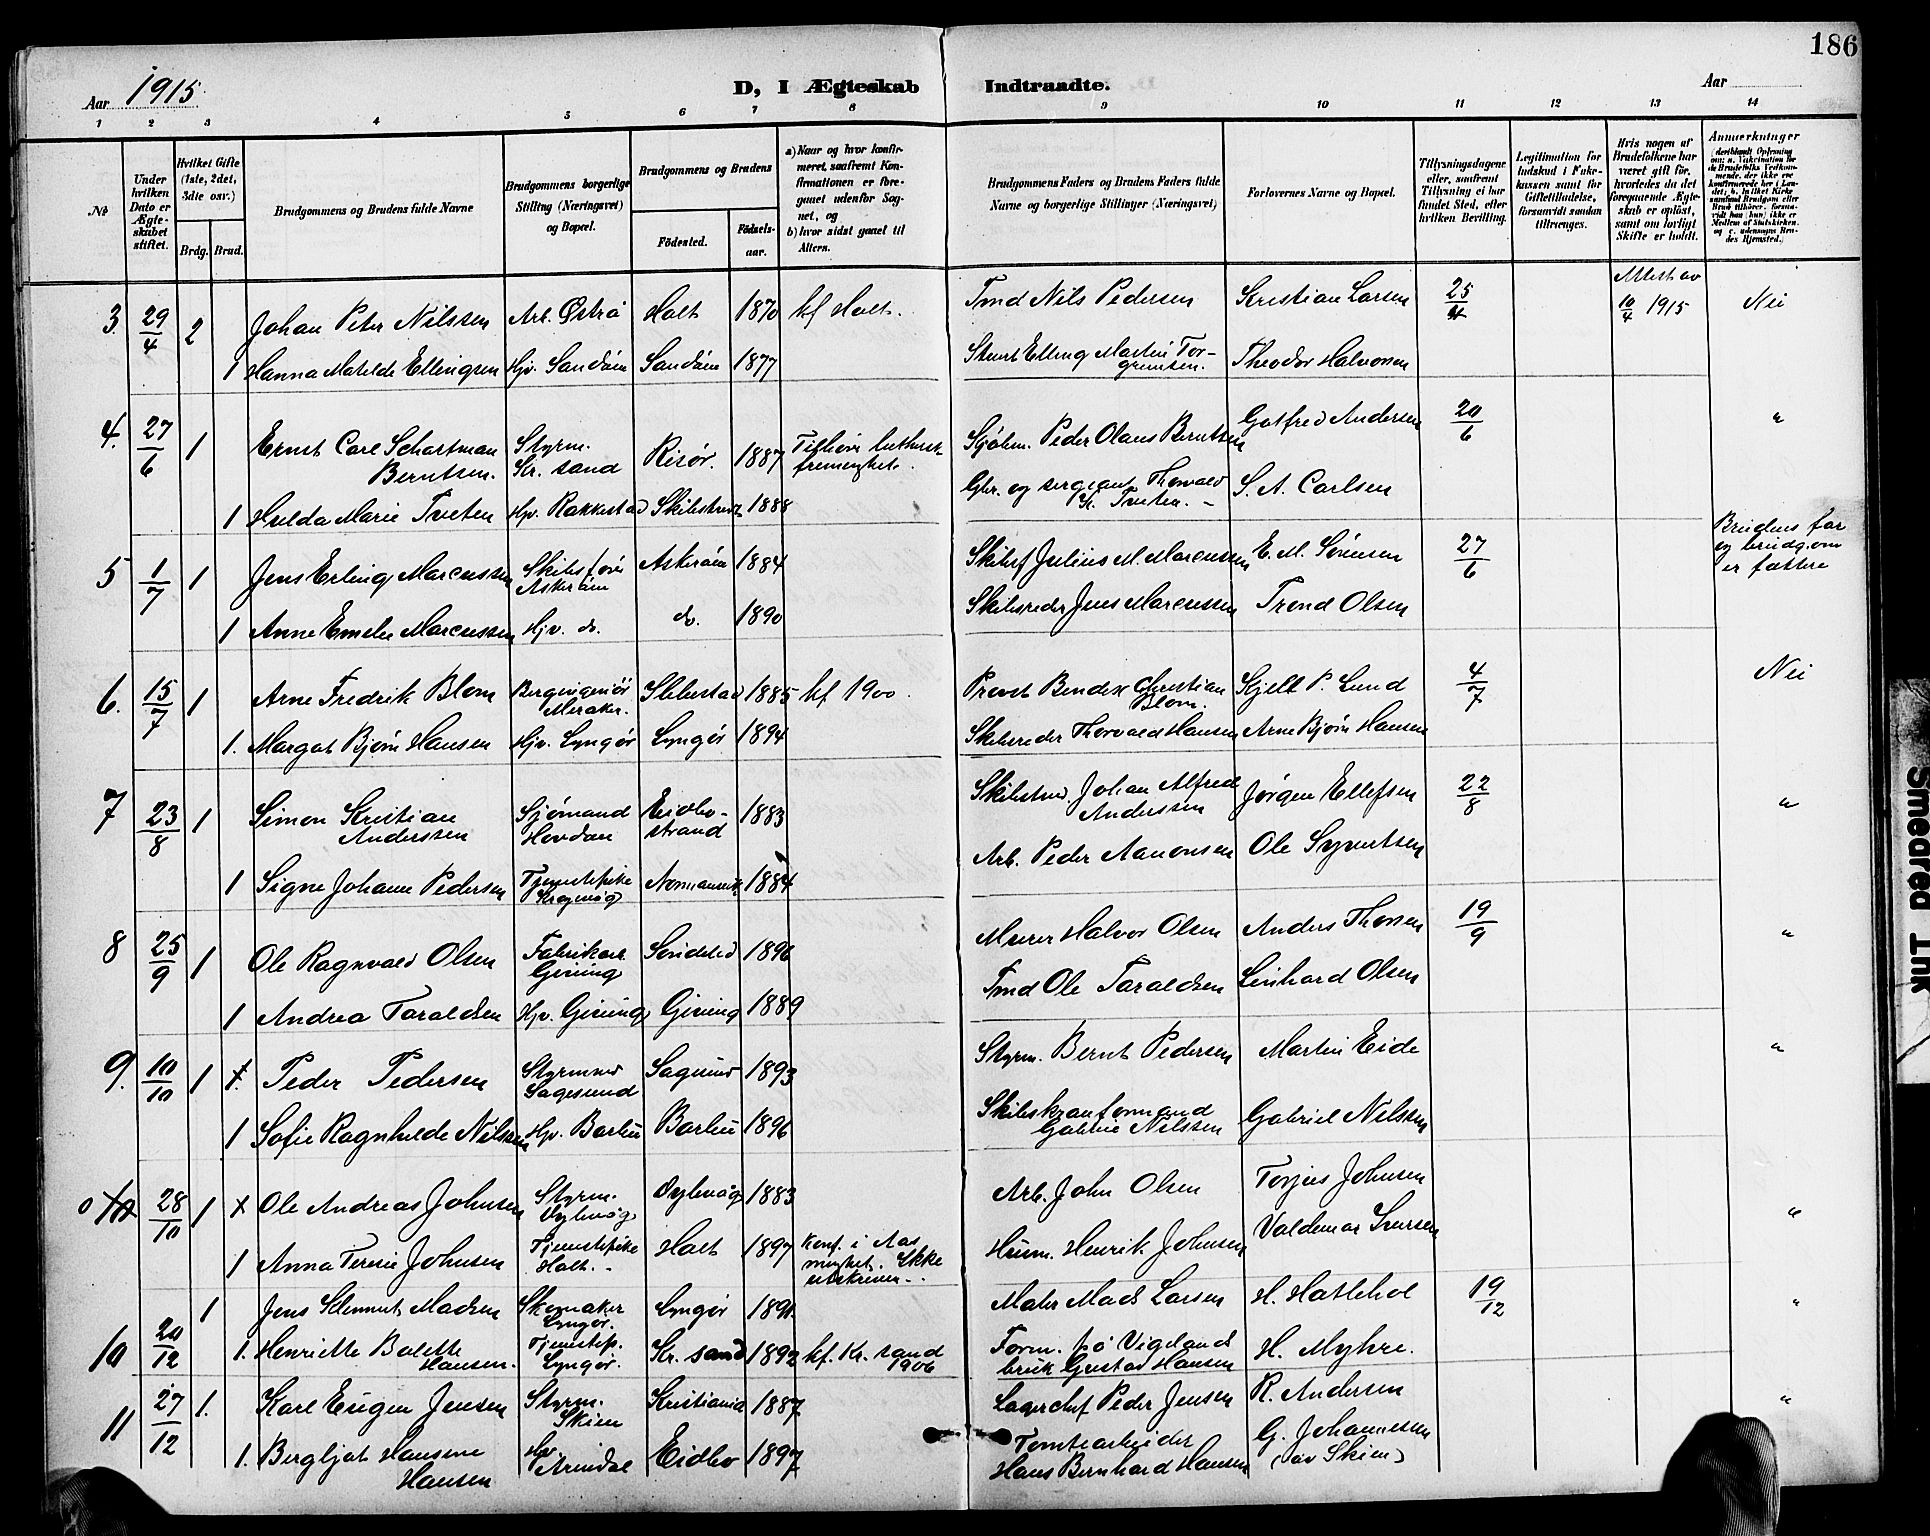 186
Aar 1915.
D, I Ægteskab Indtraadte.
Aar
1 2 3 4 5 6 7 8 9 10 11 12 13 14
№
Under hvilken Dato er Ægteskabet stiftet.
Hvilket Gifte (1ste, 2det, 3die osv.)
Brdg. Brud.
Brudgommens og Brudens fulde Navne
Brudgommens borgerlige Stilling (Næringsvei) og Bopæl.
Brudgommens og Brudens
Födested. Födsels-aar.
a) Naar og hvor konfirmeret, saafremt Konfirmationen er foregaaet udenfor Sognet, og
b) hvor sidst gaaet til Alters.
Brudgommens Faders og Brudens Faders fulde Navne og borgerlige Stillinger (Næringsvei)
Forlovernes Navne og Bopæl.
Tillysningsdagene eller, saafremt Tillysning ei har fundet Sted, efter hvilken Bevilling.
Legitimation for Indskud i Enkekassen samt for Giftetilladelse, forsaavidt saadan tiltrænges.
Hvis nogen af Brudefolkene har været gift før, hvorledes da det foregaaende Ægteskab er opløst, samt om lovligt Skifte er holdt.
Anmerkninger
3. 29/4 2 Johan Peter Nilssen Arb. Østrå Holt 1870 kf Holt. Tmd Nils Pedersen Kristian Larsen 25/4 Attest av 10/4 1915 Nei
1 Hanna Matilde Ellingsen Hjv. Sandöen Sandöen 1877 Elling Martin Torgrimsen. Theodor Halvorsen
4. 27/6 1 Ernst Carl Schartman Berntsen. Styrm. Kr. sand Risör. 1887 Tilhører luthersk frimenighet. Sjöm. Peder Olaus Berntsen Gotfred Andersen 20/6 "
1 Hulda Marie Tveten Hjv. Rakkestad 1888 Gbr. og sergeant Thorvald K. Tveten. - S. A. Carlsen
5 1/7 1 Jens Erling Marcussen Skibsförer Askeröen Askeröen 1884 Skibsf Julius M. Marcussen E. M. Sörensen 27/6 Brudens far og brudgom er fættere
1 Anne Emelie Marcussen Hjv. do. do. 1890 Skibsreder Jens Marcussen Trond Olsen
6. 15/7 1 Arne Fredrik Blom Bergingeniör Meraker. 1885 kf 1900. Provst Bendix Christian Blom. Kjell P. Lund 4/7 Nei
1. Margat Bjørn Hansen Hjv. Lyngör Lyngör 1894 Skibsreder Thorvald Hansen Arne Bjørn Hansen
7 23/8 1 Simon Kristian Anderssen Sjömand Hovdan Eidbo-strand 1883 Johan Alfred Anderssen Jörgen Ellefsen 22/8 "
1 Signe Johanne Pedersen Tjenestepike 1884 Arb. Peder Aanonsen Ole Syvertsen
8 25/9 1 Ole Ragnvald Olsen Fabrikarb. Giving Söndeled 1896 Murer Halvor Olsen Anders Thorsen 19/9 "
1 Andrea Taraldsen Hjv. Giving Giving 1889 Tmd Ole Taraldsen Linhard Olsen
9. 10/10 1 Peder Pedersen Styrmand Sagesund Sagesund 1893 Styrm. Bernt Pedersen Martin Eide "
1 Sofie Ragnhilde Nilssen Hjv. Barbu Barbu 1896 Skibskranformand Gabriel Nilssen Gabriel Nilssen
28/10 1 Ole Andreas Johnsen Styrm. Dybvåg Dybvåg 1883 Arb. John Olsen Torjus Johnsen "
1 Anna Terese Johnsen Tjenestepike Holt. - Holt 1897 Konf. i Aas menighet. Ikke utskreven. Husm. Henrik Johnsen Valdemar Iversen
10 20/12 1 Jens Klemmet Madsen Skomaker Lyngör. Lyngör 1891 Maler Mads Larsen H. Hatlehol 19/12 "
1. Henriette Bolette Hansen. Tjenestep. Lyngör. Kr. sand 1892 kf. Kr. sand 1906 Form. på Vigelands bruk Gustav Hansen H. Myhre.
11 27/12 1. Karl Eugen Jensen Styrm. Skien Kristiania 1887 Lagerchef Peder Jensen R. Andersen "
1. Bergljot Hansine Hansen Hjv. Arendal Eidbo 1897 Tomtearbeider Hans Bernhard Hansen G. Johannessen (av Skien)
Smedrød Ink